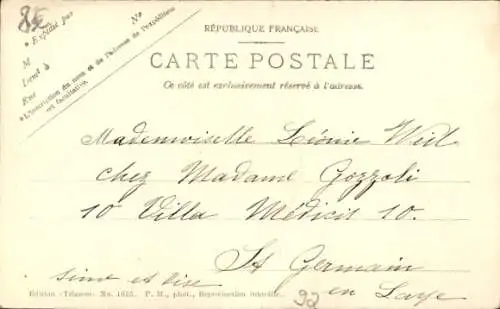 85
* Expédié par No
M
Demt à
Rue
* L'inscription du nom et de l'adresse de l'expéditeur
est facultative.
RÉPUBLIQUE FRANÇAISE
CARTE POSTALE
Ce côté est exclusivement réservé à l'adresse.
Mademoiselle Léonie Will
chez Madame Gozzoli
10 Villa Médicis 10.
St Germain
en Laye
Édition «Trianon» No. 1615. P. M., phot., Reproduction interdite.
92